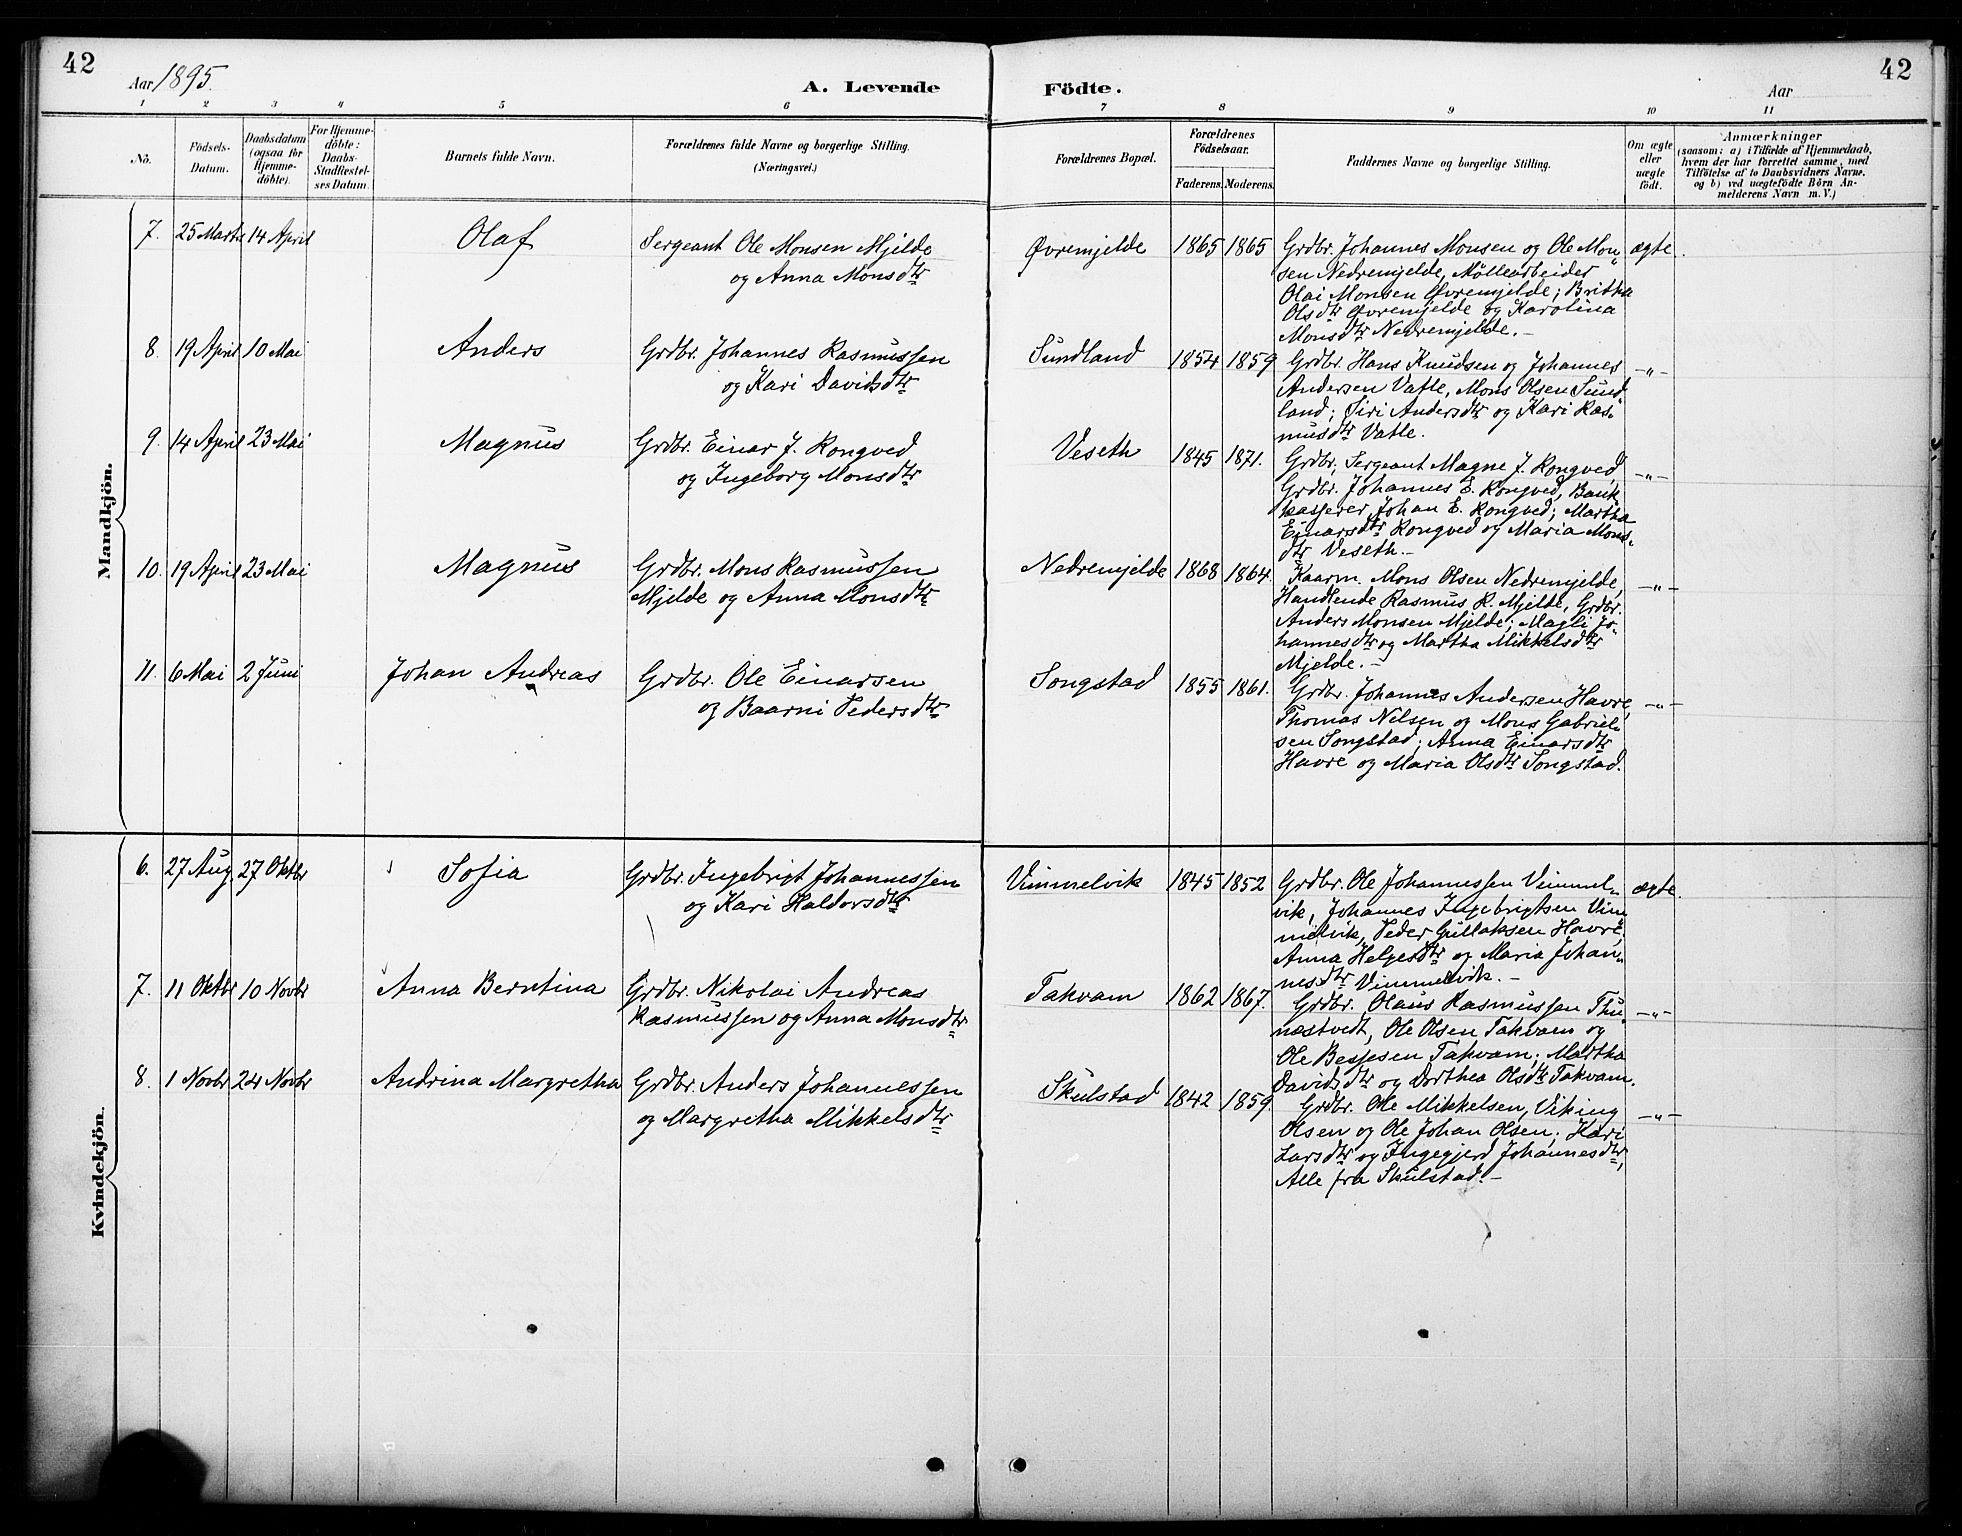 42
Aar 1895.
A. Levende Födte.
Aar
42
1 2 3 4 5 6 7 8 9 10 11
Nô.
Födsels-Datum.
Daabsdatum (ogsaa for Hjemme-döbte).
For Hjemme-döbte: Daabs-Stadfæstel-ses Datum.
Barnets fulde Navn.
Forældrenes fulde Navne og borgerlige Stilling.
(Næringsvei.)
Forældrenes Bopæl.
Forældrenes Födselsaar.
Faderens. Moderens.
Faddernes Navne og borgerlige Stilling.
Om ægte eller uægte födt.
Anmærkninger
(saasom: a) i Tilfælde af Hjemmedaab,
hvem der har forrettet samme, med
Tilföielse af to Daabsvidners Navne.
og b) ved uægtefödte Börn An-
melderens Navn m. V.)
Mandkjön.
7. 25 Marts 14 April Olaf Sergeant Ole Monsen Mjelde
og Anna Monsdtr
Øvremjelde 1865 1865 Grdbr. Johannes Monsen og Ole Mon„ ægte.
sen Nedremjelde, Møllearbeider
Olai Monsen Øvremjelde; Britha
Olsdtr Øvremjelde og Karolina
Monsdtr Nedremjelde.-
8. 19 April 10 Mai Anders Grdbr. Johannes Rasmussen
og Kari Davidsdtr
Sundland 1854 1859 Grdbr. Hans Knudsen og Johannes -„-
Andersen Vatle, Mons Olsen Sund„
land; Siri Andersdtr og Kari Ras„
musdtr Vatle.
9. 14 April 23 Mai Magnus Grdbr. Einar J. Rongved
og Ingeborg Monsdtr
Veseth 1845 1871. Grdbr, Sergeant Magne J. Rongved, -„-
Grdbr. Johannes E. Rongved, Bank„
kasserer Johan E. Rongved; Martha
Einarsdtr Rongved og Maria Mons„
dtr Veseth.-
10. 19 April 23 Mai Magnus Grdbr. Mons Rasmussen
Mjelde og Anna Monsdtr
Nedremjelde 1868 1864. Kaarm. Mons Olsen Nedremjelde, -„-
Handlende Rasmus R. Mjelde, Grdbr.
Anders Monsen Mjelde; Magli Jo„
hannesdtr og Martha Mikkelsdtr
Mjelde.-
11. 6 Mai 2 Juni Johan Andreas Grdbr. Ole Einarsen
og Baarni Pedersdtr
Songstad 1855 1861. Grdbr. Johannes Andersen Havre, -„-
Thomas Nilsen og Mons Gabriel„
sen Songstad; Anna Einarsdtr
Havre og Maria Olsdtr Songstad.
Kvindekjön.
6. 27 Aug. 27 Oktbr Sofia Grdbr. Ingebrigt Johannessen
og Kari Haldorsdtr
Vimmelvik 1845 1852 Grdbr. Ole Johannessen Vimmel„ ægte.
vik, Johannes Ingebrigtsen Vim„
melvik, Peder Gullaksen Havre;
Anna Helgesdtr og Maria Johan„
nesdtr Vimmelvik.-
7. 11 Oktbr 10 Novbr Anna Berntina Grdbr. Nikolai Andreas
Rasmussen og Anna Monsdtr
Takvam 1862 1867. Grdbr. Olaus Rasmussen Thu„ -„-
næstvedt, Ole Olsen Takvam og
Ole Besjesen Takvam; Martha
Davidsdtr og Dorthea Olsdtr Takvam.
8. 1 Novbr 24 Novbr Andrina Margretha Grdbr. Anders Johannessen
og Margretha Mikkelsdtr
Skulstad 1842 1859. Grdbr. Ole Mikkelsen, Viking -„-
Olsen og Ole Johan Olsen; Kari
Larsdtr og Ingegjerd Johannesdtr,
Alle fra Skulstad.-